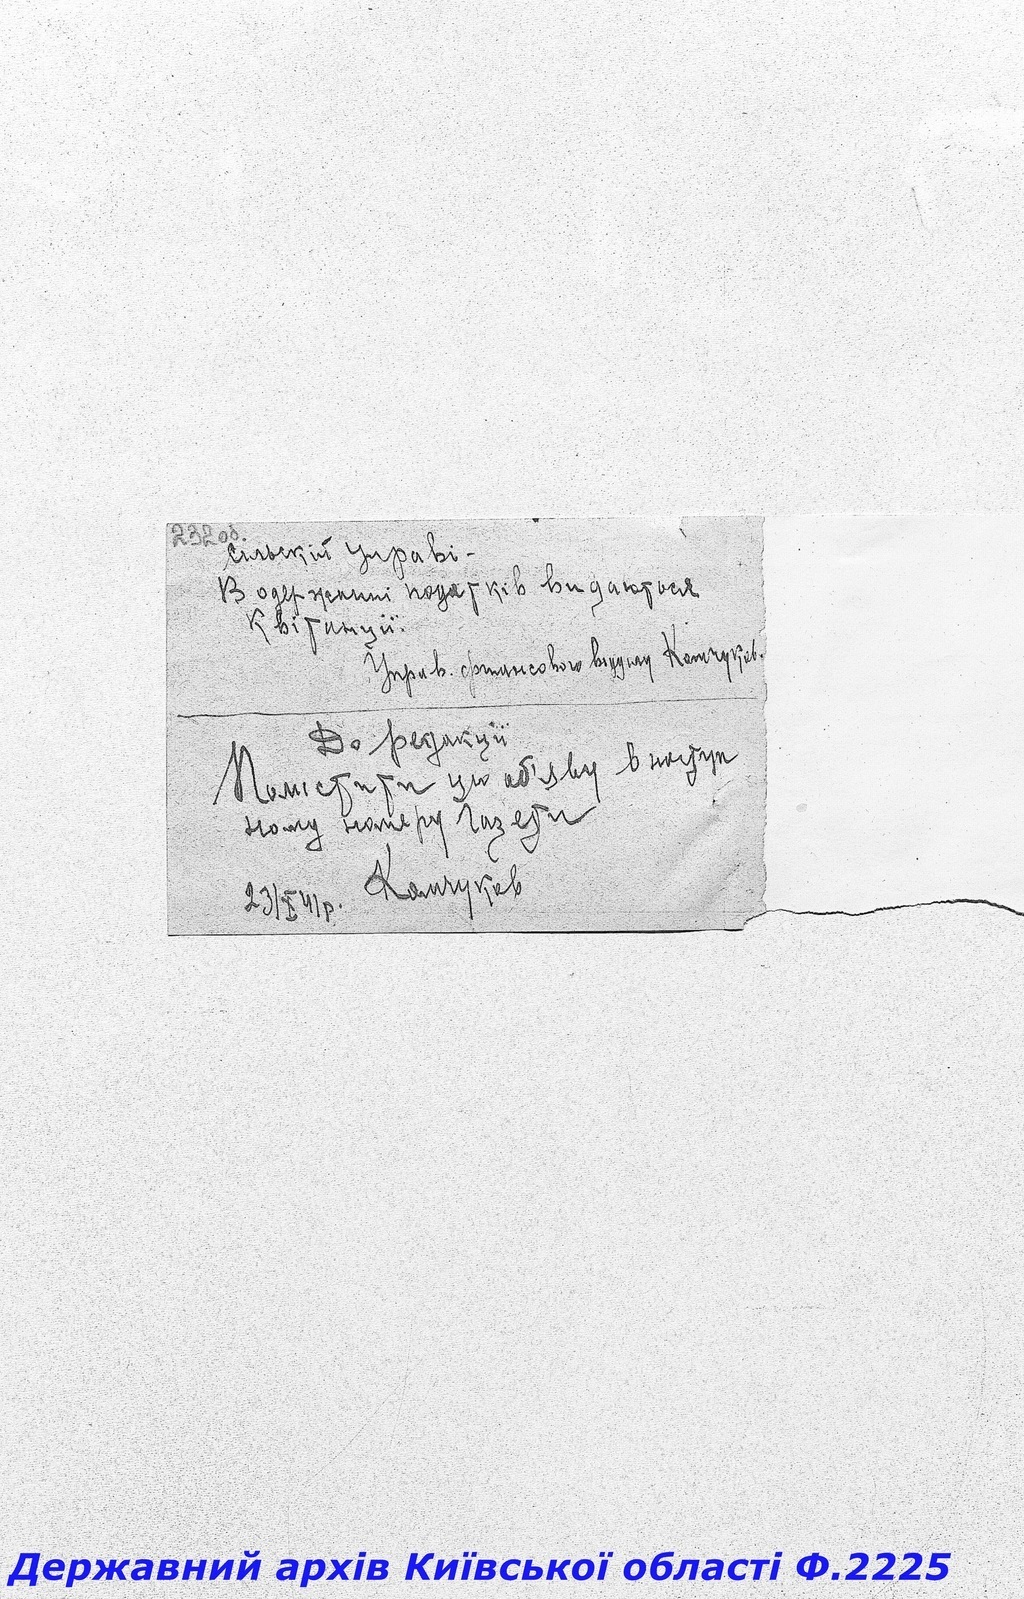 232 об.
сільскій управі -
В одержанні податків видаються
квітанції.
Управ. фінансового відділу Камчуков.
До редакції
Помістити цю об'яву в наступ
ному номеру газети
Камчуков
23/X 41 р.
Державний архів Київської області Ф.2225